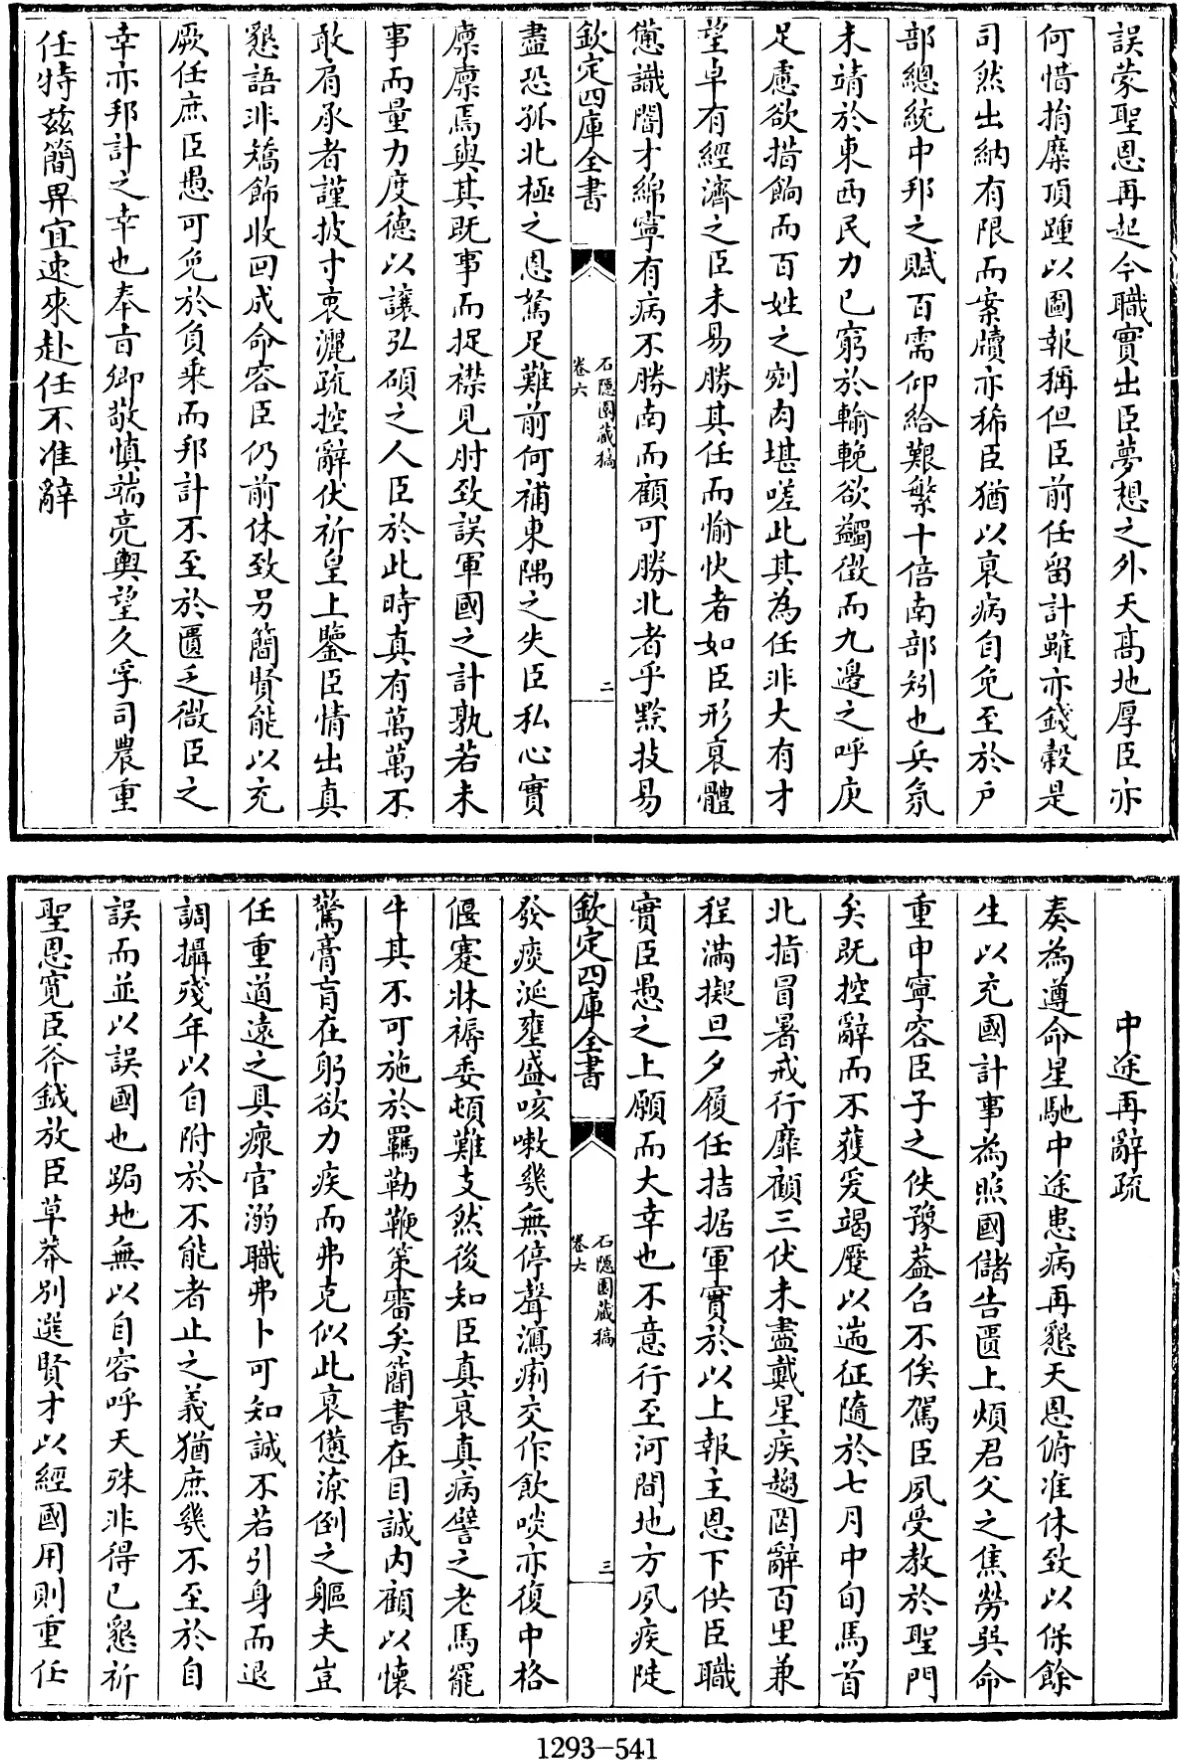 誤蒙聖恩再起今職實出臣夢想之外天高地厚臣亦
何惜捐糜頂踵以圖報稱但臣前任留計雖亦錢穀是
司然出納有限而案牘亦稀臣猶以衰病自免至於戶
部總統中邦之賦百需仰給艱繁十倍南部矧也兵氛
未靖於東西民力已窮於輸輓欲蠲徵而九邊之呼庚
足慮欲措餉而百姓之剜肉堪嗟此其為任非大有才
望卓有經濟之臣未易勝其任而愉快者如臣形衰體
憊識闇才綿寧有病不勝南而顧可勝北者乎黔技易
欽定四庫全書
石隱園藏稿
卷六
二
盡恐孤北極之恩駑足難前何補東隅之失臣私心實
凛凛焉與其既事而捉襟見肘致誤軍國之計孰若未
事而量力度德以讓弘碩之人臣於此時真有萬萬不
敢肩承者謹披寸衷灑疏控辭伏祈皇上鑒臣情出真
懇語非矯飾收回成命容臣仍前休致另簡賢能以充
厥任庶臣愚可免於負乘而邦計不至於匱乏微臣之
幸亦邦計之幸也奉旨卿敬慎端亮輿望久孚司農重
任特兹簡畀宜速來赴任不准辭
中途再辭疏
奏為遵命星馳中途患病再懇天恩俯准休致以保餘
生以充國計事為照國儲告匱上煩君父之焦勞巽命
重申寧容臣子之佚豫葢召不俟駕臣夙受教於聖門
矣既控辭而不獲爰竭蹷以遄征隨於七月中旬馬首
北指冒暑戒行靡顧三伏未盡戴星疾趨罔辭百里兼
程滿擬旦夕履任拮据軍實於以上報主恩下供臣職
實臣愚之上願而大幸也不意行至河間地方夙疾陡
欽定四庫全書
石隱園藏稿
卷六
三
發痰涎壅盛咳嗽幾無停聲瀉痢交作飲啖亦復中格
偃蹇牀褥委頓難支然後知臣真衰真病譬之老馬罷
牛其不可施於羈勒鞭策審矣簡書在目誠内顧以懷
驚膏肓在躬欲力疾而弗克似此衰憊潦倒之軀夫豈
任重道遠之具瘝官溺職弗卜可知誠不若引身而退
調攝殘年以自附於不能者止之義猶庶幾不至於自
誤而並以誤國也跼地無以自容呼天殊非得已懇祈
聖恩寛臣斧鉞放臣草莽别選賢才以經國用則重任
1293-541